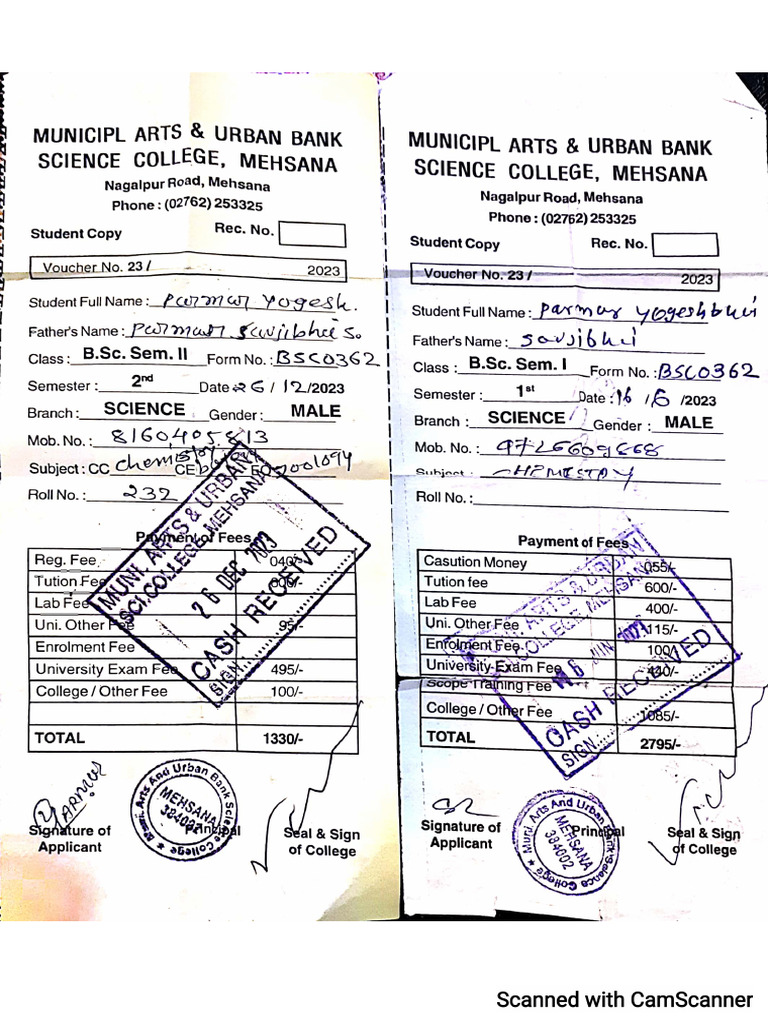 MUNICIPL ARTS & URBAN BANK
SCIENCE COLLEGE, MEHSANA
Nagalpur Road, Mehsana
Phone : (02762) 253325
Student Copy Rec. No.
Voucher No. 23 / 2023
Student Full Name : Parmar Yogesh.
Father's Name : Parmar Savjibhai S.
Class : B.Sc. Sem. II Form No. : BSC0362
Semester : 2nd Date 26 / 12 /2023
Branch : SCIENCE Gender : MALE
Mob. No. : 8160405813
Subject : CC chemistry CE
Roll No. : 232
Payment of Fees
Reg. Fee 040/-
Tution Fee 600/-
Lab Fee
Uni. Other Fee 95/-
Enrolment Fee
University Exam Fee 495/-
College / Other Fee 100/-
TOTAL 1330/-
MUNI. ARTS & URBAN
SCI.COLLEGE, MEHSANA
26 DEC 2023
CASH RECEIVED
SIGN.
Parmar
Muni. Arts And Urban Bank Science College
MEHSANA
384002
Signature of Applicant
Principal
Seal & Sign of College
MUNICIPL ARTS & URBAN BANK
SCIENCE COLLEGE, MEHSANA
Nagalpur Road, Mehsana
Phone : (02762) 253325
Student Copy Rec. No.
Voucher No. 23 / 2023
Student Full Name : Parmar Yogeshbhai
Father's Name : Savjibhai
Class : B.Sc. Sem. I Form No. : BSC0362
Semester : 1st Date : 16 / 6 /2023
Branch : SCIENCE Gender : MALE
Mob. No. :
Subject : CHEMESTRY
Roll No. :
Payment of Fees
Casution Money 055/-
Tution fee 600/-
Lab Fee 400/-
Uni. Other Fee 115/-
Enrolment Fee 100/-
University Exam Fee 440/-
Scope Training Fee
College / Other Fee 1085/-
TOTAL 2795/-
MUNI. ARTS & URBAN
COLLEGE MEHSANA
JUN 2023
CASH RECEIVED
SIGN.
Muni. Arts And Urban Bank Science College
MEHSANA
384002
Signature of Applicant
Principal
Seal & Sign of College
Scanned with CamScanner